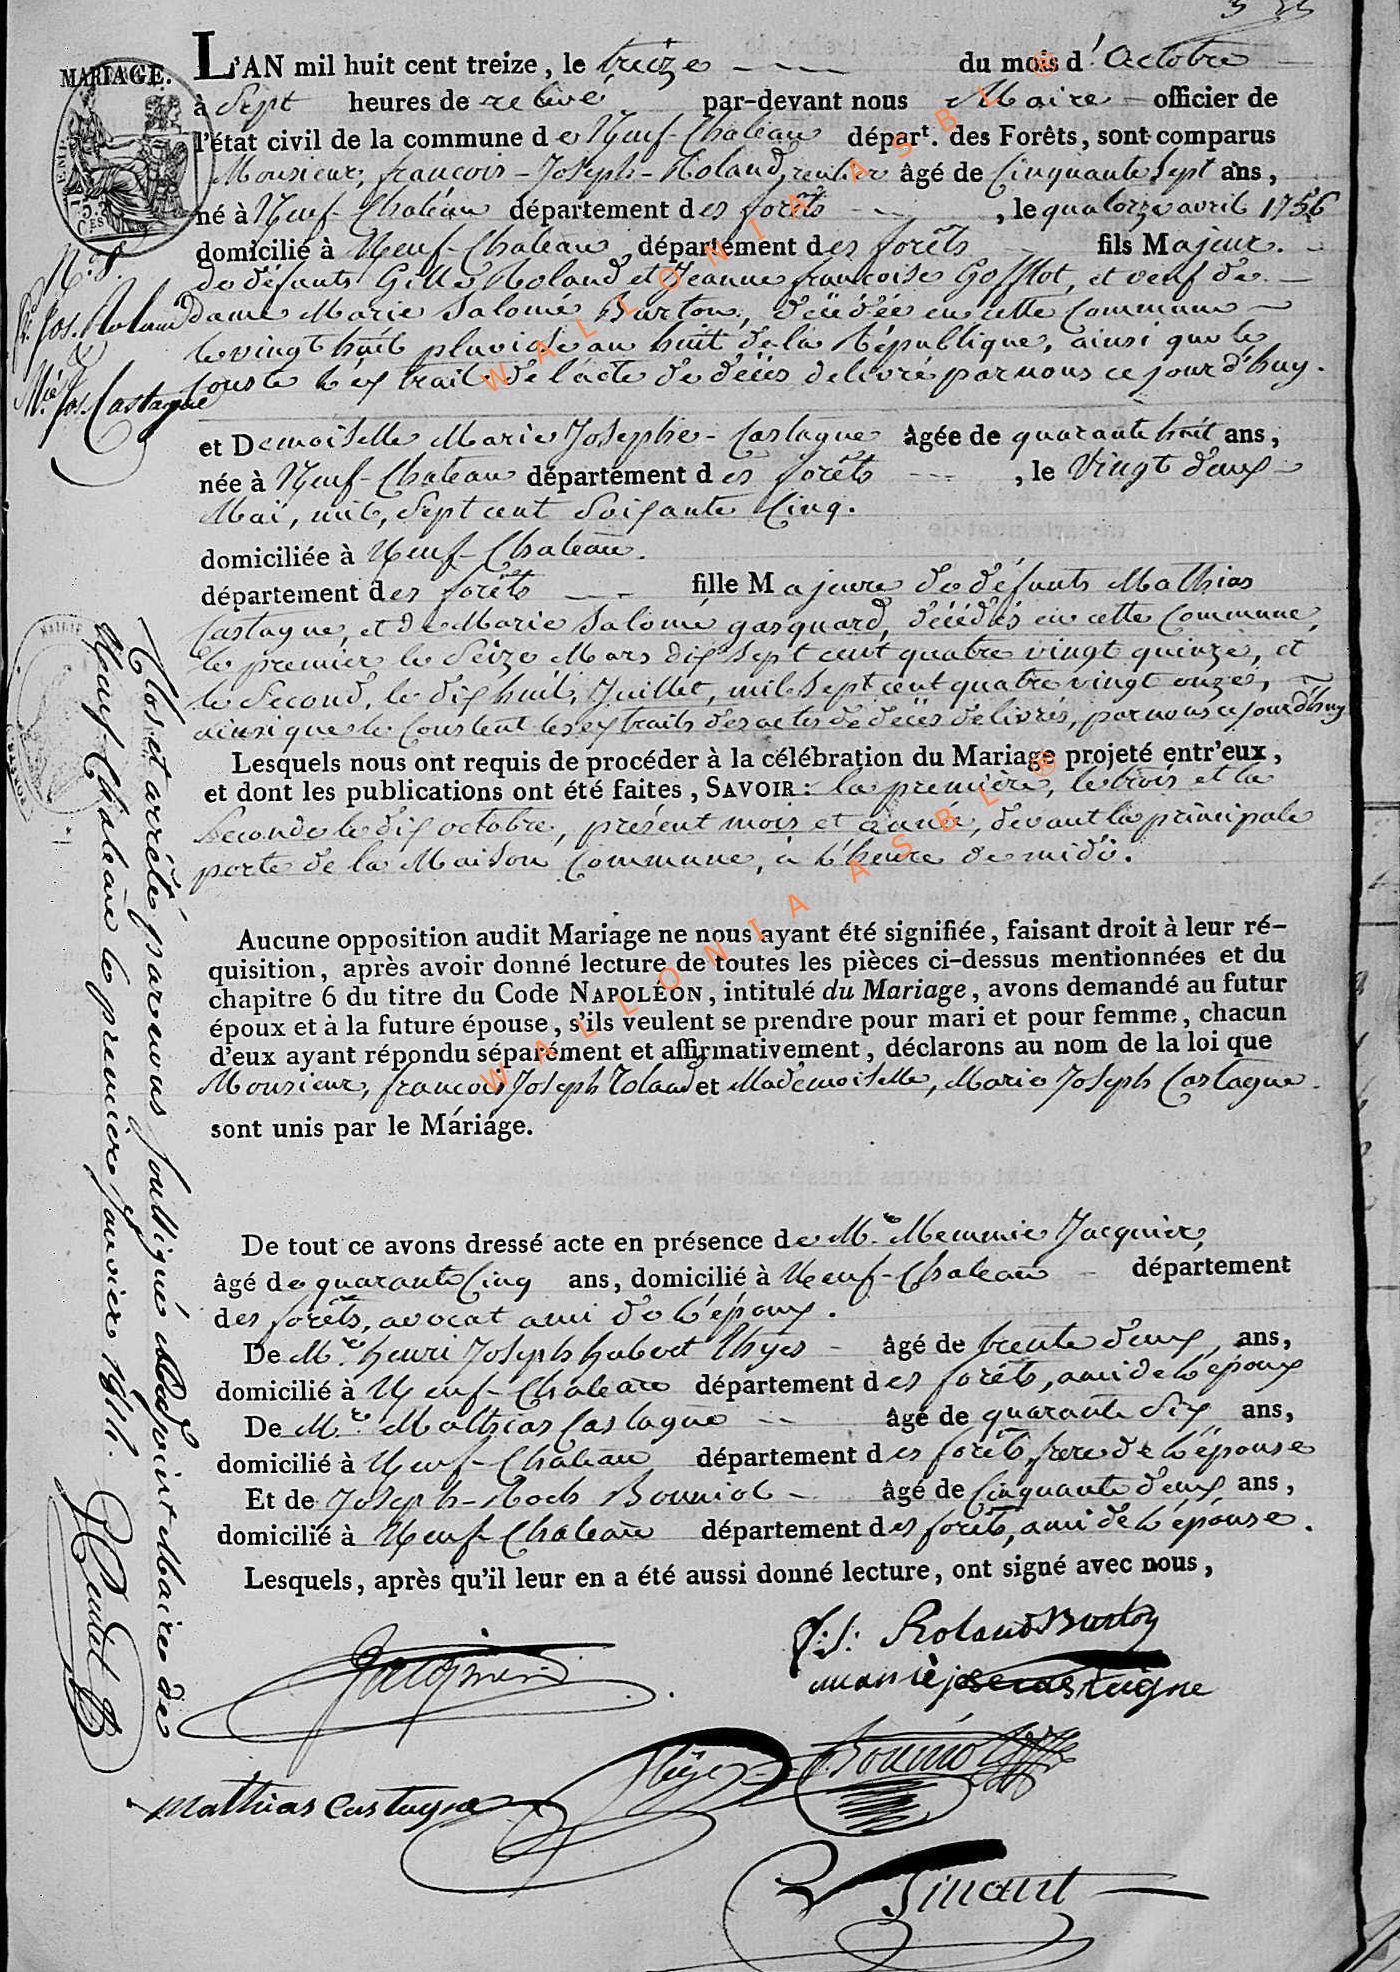 MARIAGE.
L'AN mil huit cent treize, le treize du mois d'Octobre
à Sept heures de relevé par-devant nous Maire officier de
l'état civil de la commune de Neuf-Chateau départ. des Forêts, sont comparus
Monsieur, françois-Joseph-Roland, rentier âgé de Cinquante Sept ans,
né à Neuf-Chateau département des forêts, le quatorze avril 1756
domicilié à Neuf-Chateau département des forêts fils Majeur.
de défunts Gille Roland et Jeanne françoise Gofflot, et veuf de
dame Marie Salomé Burton, décédée en cette Commune
le vingt huit pluviose an huit de la République, ainsi que le
Conste l'extrait de l'acte de décès delivré par nous ce jourd'huy.
N.° 8.
fr. Jos. Roland
&
M.ie Jos. Castagne
et Demoiselle Marie Josephe-Castagne âgée de quarante huit ans,
née à Neuf-Chateau département des forêts, le Vingt deux
Mai, mil, Sept cent Soixante Cinq.
domiciliée à Neuf-Chateau.
département des forêts fille Majeure de défunts Mathias
Castagne, et de Marie Salomé gasquard, décédés en cette Commune,
le premier le Seize Mars dix Sept cent quatre vingt quinze, et
le Second, le dix huit, Juillet, mil Sept cent quatre vingt onze,
ainsi que le Constent les extraits des actes de décès delivrés, par nous ce jourd'huy
Lesquels nous ont requis de procéder à la célébration du Mariage projeté entr'eux,
et dont les publications ont été faites, SAVOIR: la première, le trois et la
Seconde le dix octobre, présent mois et année, devant la principale
porte de la Maison Commune, à l'heure de midi.
Aucune opposition audit Mariage ne nous ayant été signifiée, faisant droit à leur ré-
quisition, après avoir donné lecture de toutes les pièces ci-dessus mentionnées et du
chapitre 6 du titre du Code NAPOLÉON, intitulé du Mariage, avons demandé au futur
époux et à la future épouse, s'ils veulent se prendre pour mari et pour femme, chacun
d'eux ayant répondu séparément et affirmativement, déclarons au nom de la loi que
Monsieur, françois Joseph Roland et Mademoiselle, Marie Joseph Castagne.
sont unis par le Máriáge.
De tout ce avons dressé acte en présence de M.r Memmie Jacquier,
âgé de quarante Cinq ans, domicilié à Neuf-Chateau département
des forêts, avocat ami de l'époux.
De M.r henri Joseph hubert Thyes âgé de trente deux ans,
domicilié à Neuf-Chateau département des forêts, ami de l'époux
De M.r Mathias Castagne âgé de quarante Six ans,
domicilié à Neuf-Chateau département des forêts, frere de l'épouse
Et de Joseph-Roch Bouniol âgé de Cinquante deux ans,
domicilié à Neuf-Chateau département des forêts, ami de l'épouse.
Lesquels, après qu'il leur en a été aussi donné lecture, ont signé avec nous,
f: j: Roland Burton
Jacquier
marie jose castagne
Thÿes
Bouniol
mathias castagne
Sinant
Clos et arrêté par nous Soussigné adjoint Maire de
Neuf-Chateau le premier Janvier 1814.
WALLONIA ASBL ®
WALLONIA ASBL ®